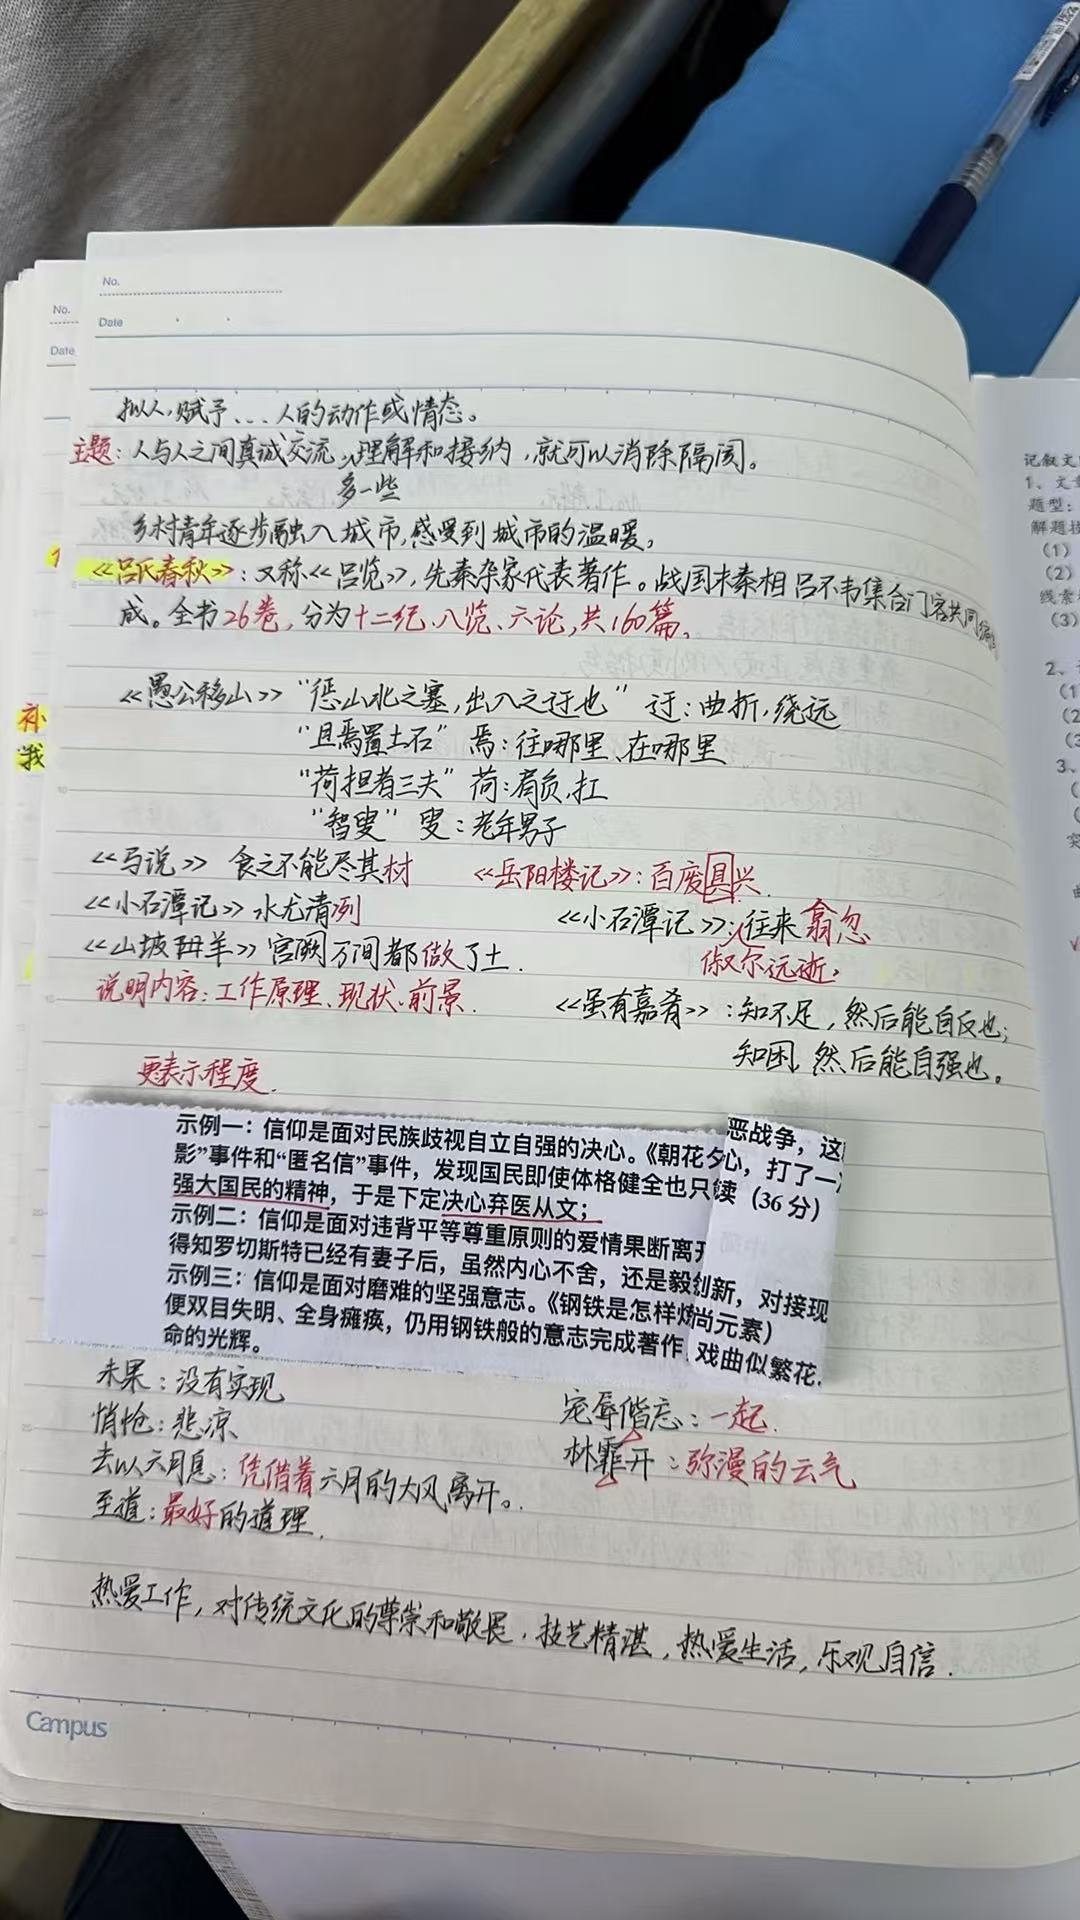 No.
Date
No.
Date
拟人,赋予...人的动作或情态。
主题:人与人之间真诚交流,理解和接纳,就可以消除隔阂。
多一些
乡村青年逐步融入城市,感受到城市的温暖,
《吕氏春秋》:又称《吕览》,先秦杂家代表著作。战国末秦相吕不韦集合门客共同编
成。全书26卷,分为十二纪、八览、六论,共160篇,
补
我
《愚公移山》"惩山北之塞,出入之迂也" 迂:曲折,绕远
"且焉置土石" 焉:往哪里、在哪里
"荷担者三夫" 荷:肩负,扛
"智叟" 叟:老年男子
《马说》 食之不能尽其材 《岳阳楼记》:百废具兴.
《小石潭记》水尤清冽 《小石潭记》:往来翕忽
俶尔远逝,
《山坡羊》宫阙万间都做了土.
说明内容:工作原理、现状、前景.
《虽有嘉肴》:知不足,然后能自反也;
知困,然后能自强也。
更表示程度.
示例一:信仰是面对民族歧视自立自强的决心。《朝花夕
影”事件和“匿名信”事件,发现国民即使体格健全也只
强大国民的精神,于是下定决心弃医从文;
示例二:信仰是面对违背平等尊重原则的爱情果断离开
得知罗切斯特已经有妻子后,虽然内心不舍,还是毅
示例三:信仰是面对磨难的坚强意志。《钢铁是怎样炼
便双目失明、全身瘫痪,仍用钢铁般的意志完成著作
命的光辉。
恶战争,这
心,打了一
读(36分)
创新,对接现
尚元素)
戏曲似繁花.
未果:没有实现
悄怆:悲凉
去以六月息:凭借着六月的大风离开。
至道:最好的道理.
宠辱偕忘:一起.
林霏开:弥漫的云气
热爱工作,对传统文化的尊崇和敬畏,技艺精湛,热爱生活,乐观自信.
Campus
记叙文
1、文章
题型:
解题技
(1)
(2)
线索
(3)
2、
(1
(2
(3
3、